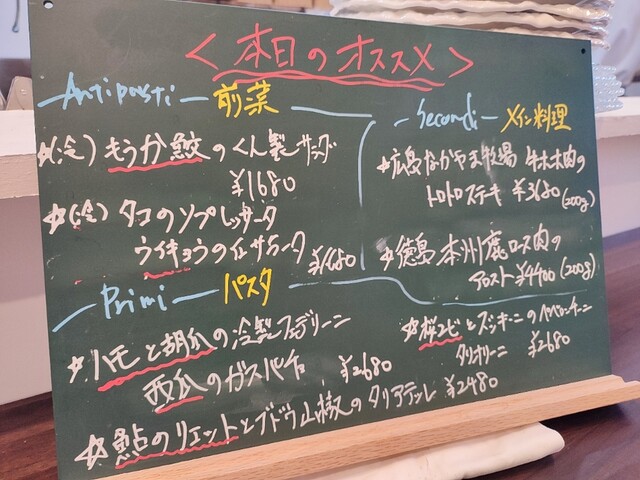 <本日のオススメ>
Antipasti 前菜
☆(冷) もうか鮫のくん製サラダ
¥1680
☆(冷) タコのソプレッサータ
ウイキョウのインサラータ
¥1680
Secondi メイン料理
☆広島なかやま牧場 牛ホホ肉の
トロトロステーキ ¥3680 (200g)
☆徳島 本州鹿ロース肉の
ロースト ¥4400 (200g)
Primi パスタ
☆ハモと胡瓜の冷製フェデリーニ
西瓜のガスパチョ ¥2680
☆桜エビとズッキーニのペペロンチーニ
タリオリーニ ¥2680
☆鮎のリエットとブドウ山椒のタリアテッレ ¥2480